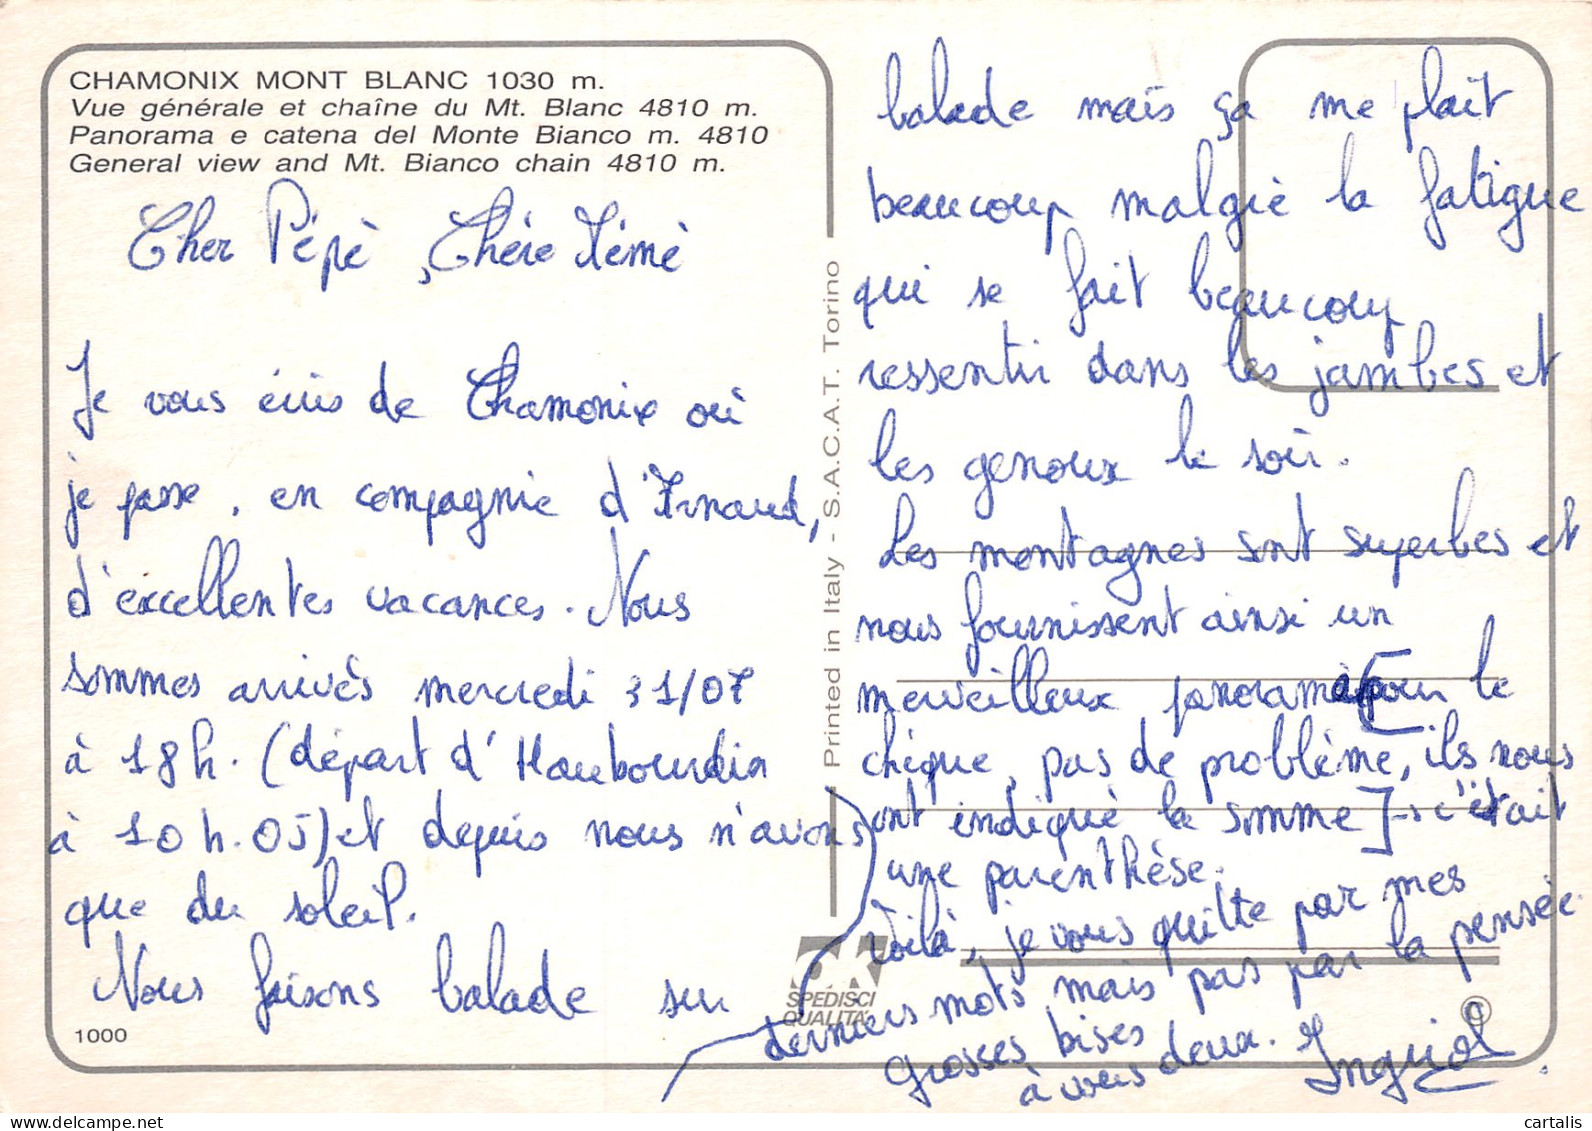 CHAMONIX MONT BLANC 1030 m.
Vue générale et chaîne du Mt. Blanc 4810 m.
Panorama e catena del Monte Bianco m. 4810
General view and Mt. Bianco chain 4810 m.
Cher Pépé, Chère Mémé
Je vous écris de Chamonix où
je passe, en compagnie d'Arnaud,
d'excellentes vacances. Nous
sommes arrivés mercredi 31/07
à 18h. (départ d'Haubourdin
à 10h.05) et depuis nous n'avons
que du soleil.
Nous faisons balade sur
1000
Printed in Italy - S.A.C.A.T. Torino
SPEDISCI
QUALITÀ
balade mais ça me plaît
beaucoup malgré la fatigue
qui se fait beaucoup
ressentir dans les jambes et
les genoux le soir.
Les montagnes sont superbes et
nous fournissent ainsi un
merveilleux panorama [pour le
chèque, pas de problème, ils nous
ont indiqué la somme] → c'était
une parenthèse.
Voilà, je vous quitte par mes
derniers mots mais pas par la pensée.
Grosses bises
à vous deux. Ingrid
©
cartalis